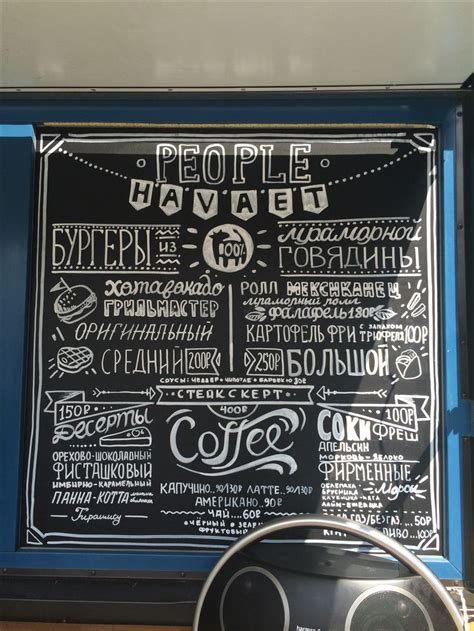 PEOPLE
HAVAET
БУРГЕРЫ ИЗ 100% мраморной
ГОВЯДИНЫ
Хотавокадо
ГРИЛЬМАСТЕР
ОРИГИНАЛЬНЫЙ
СРЕДНИЙ 200₽
РОЛЛ МЕКСИКАНЕЦ
мраморный ролл
ФАЛАФЕЛЬ 180₽
КАРТОФЕЛЬ ФРИ С ЗАПАХОМ ТРЮФЕЛЯ 100₽
250₽ БОЛЬШОЙ
СОУСЫ: ЧЕДДЕР • ЧИПОТЛЕ • БАРБЕКЮ 30₽
СТЕАК С КЕРТ
400₽
150₽
Десерты
ОРЕХОВО-ШОКОЛАДНЫЙ
ФИСТАШКОВЫЙ
ИМБИРНО-КАРАМЕЛЬНЫЙ
ПАННА-КОТТА
Тирамису
Coffee
КАПУЧИНО...90/130₽ ЛАТТЕ..90/130₽
АМЕРИКАНО...90₽
ЧАЙ....60₽
ФРУКТОВЫЙ
СОКИ 100₽
ФРЕШ
АПЕЛЬСИН
МОРКОВЬ-ЯБЛОКО
ФИРМЕННЫЕ
Морсы
ОБЛЕПИХА
БРУСНИКА
КЛЮКВА
ЛАЙМ-
ГАЗ/БЕЗ ГАЗ....50₽
ПИВО...100₽